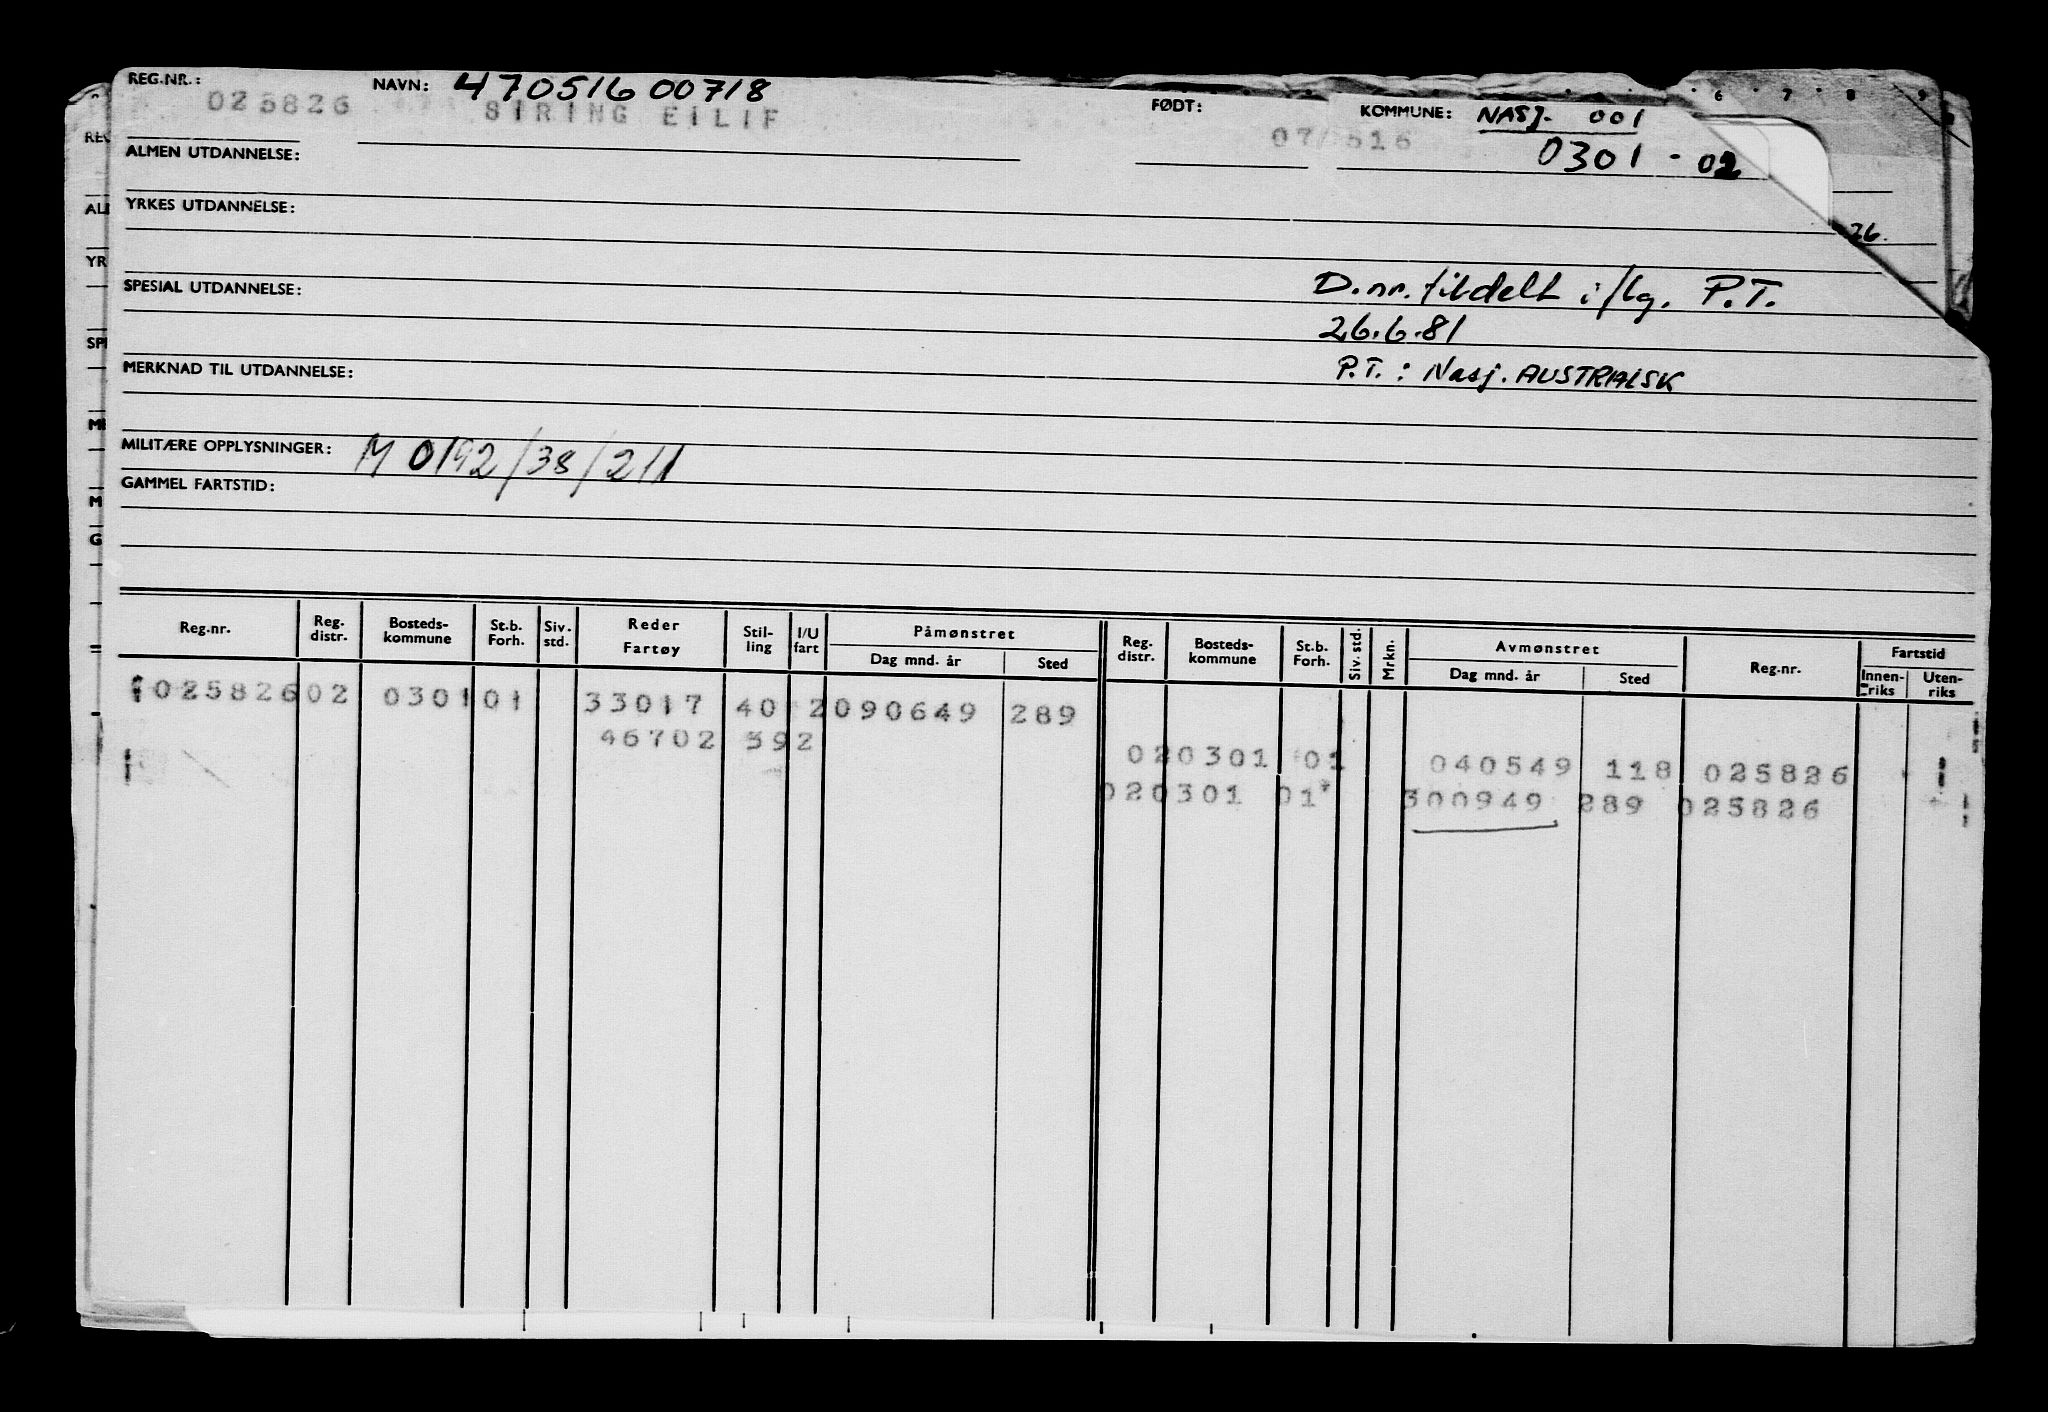 REG.NR.: NAVN: 470516 00718 FØDT: KOMMUNE: NASJ. 001
025826 SIRING EILIF 07/516 0301 - 02
ALMEN UTDANNELSE:
YRKES UTDANNELSE:
26.
SPESIAL UTDANNELSE: D.nr. tildelt i flg. P.T.
26.6.81
MERKNAD TIL UTDANNELSE: P.T.: Nasj. AUSTRIALSK
MILITÆRE OPPLYSNINGER: M 0192/38/211
GAMMEL FARTSTID:
Reg.nr. Reg. distr. Bosteds-kommune St.b. Forh. Siv. std. Reder Fartøy Stil-ling I/U fart Påmønstret Dag mnd. år Sted Reg. distr. Bosteds-kommune St.b. Forh. Siv. std. Mrkn. Avmønstret Dag mnd. år Sted Reg.nr. Fartstid Innen-riks Uten-riks
025826 02 0301 01 33017 40 2 090649 289
46702 592
02 0301 01 040549 118 025826
02 0301 01 300949 289 025826